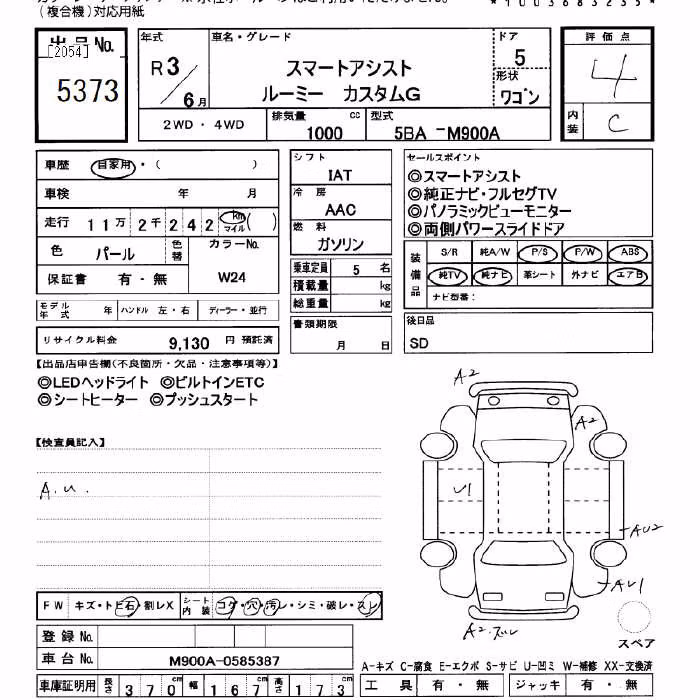 (複合機)対応用紙
*1003683235*
出品No.
[2054]
5373
年式
R3/6月
車名・グレード
スマートアシスト
ルーミー カスタムG
ドア
5
形状
ワゴン
評価点
4
内装
C
2WD・4WD
排気量
1000 cc
型式
5BA -M900A
車歴
自家用・( )
車検 年 月
走行 11万2千242 km マイル ( )
色 パール
色替
カラーNo.
W24
保証書 有・無
モデル年式 年
ハンドル 左・右
ディーラー・並行
リサイクル料金 9,130 円 預託済
シフト
IAT
冷房
AAC
燃料
ガソリン
乗車定員 5 名
積載量 kg
総重量 kg
書類期限
月 日
セールスポイント
◎スマートアシスト
◎純正ナビ・フルセグTV
◎パノラミックビューモニター
◎両側パワースライドドア
装備品
S/R 純A/W P/S P/W ABS
純TV 純ナビ 革シート 外ナビ エアB
ナビ型番:
後日品
SD
【出品店申告欄(不良箇所・欠品・注意事項等)】
◎LEDヘッドライト ◎ビルトインETC
◎シートヒーター ◎プッシュスタート
【検査員記入】
A.U.
A2
A2
U1
AU2
AU1
A2.スレ
スペア
FW キズ・トビ石・割レX
シート内装 コゲ・穴・汚レ・シミ・破レ・スレ
登録No.
車台No. M900A-0585387
車庫証明用 長さ 370 cm 幅 167 cm 高さ 173 cm
A-キズ C-腐食 E-エクボ S-サビ U-凹ミ W-補修 XX-交換済
工具 有・無 ジャッキ 有・無